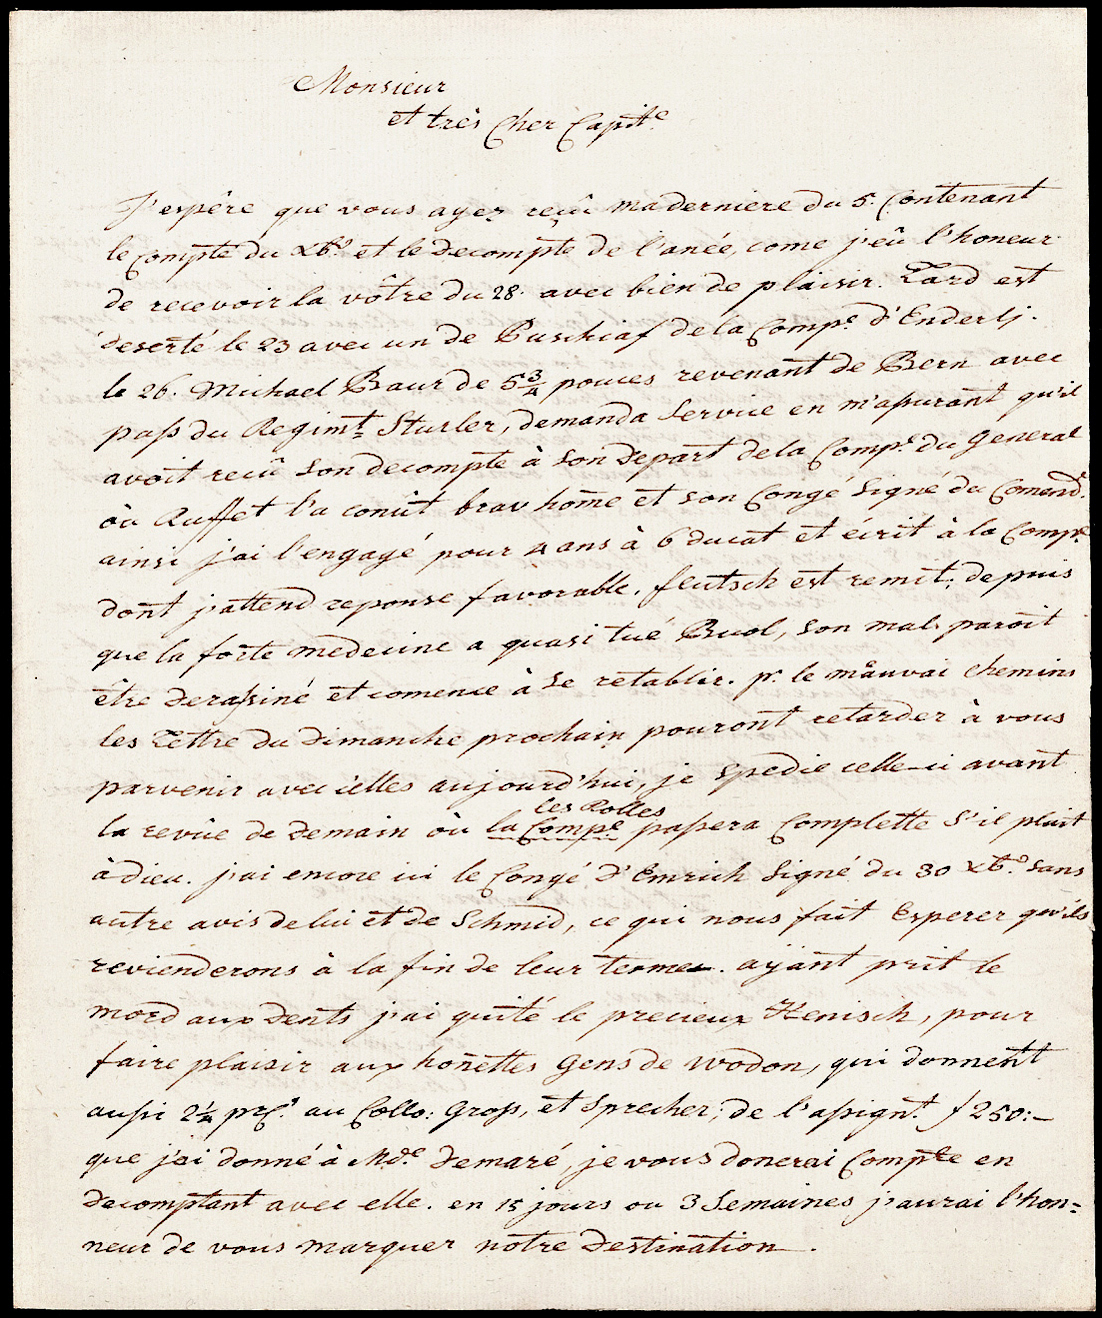 Monsieur
et très Cher Capit.e
J'espêre que vous ayez reçû ma derniere du 5. Contenant
le Compte du Xb.e et le Decompte de l'anée, come j'eû l'honeur
de recevoir la vôtre du 28. avec bien de plaisir. Tard est
deserté le 23 avec un de Puschiaf de la Comp.e d'Enderlj.
le 26. Michael Baur de 5 3/4 pouces revenant de Bern avec
paſs du Regimt. Sturler, demanda Service en m'aſsurant qu'il
avoit reçû Son decompte à Son Depart de la Comp.e du General
où Ruffet l'a conût brav hom̄e et son Congé Signé du Comend.
ainsi j'ai l'engagé pour 4 ans à 6 ducat et écrit à la Comp.e
dont j'attend reponse favorable. flutsch est remit; depuis
que la forte medecine a quasi tué Buol, Son mal paroit
être Deraſsiné et comence à Se retablir. pr. le mauvai Chemins
les Lettre du Dimanche prochain pouront retarder à vous
parvenir avec celles aujourd'hui, je spedie celle-ci avant
la revûe de Demain où la Comp.e paſsera Complette S'il plait
les Rolles
à Dieu. j'ai encore ici le Congé D'Emrich Signé du 30 Xb.e Sans
autre avis de lui et de Schmid, ce qui nous fait Esperer qu'ils
reviendrons à la fin de leur termes. ayant prit le
mord aux Dents j'ai quité le precieux Henisch, pour
faire plaisir aux hoñettes Gens de Wodon, qui donnent
auſsi 2 1/4 prC.t au Collo: Groſs, et Sprecher; de l'aſsign.t f 250:-
que j'ai donné à Md.e Demaré, je vous donerai Compte en
Decomptant avec elle. en 15 jours ou 3 Semaines j'aurai l'hon=
neur de vous marquer notre Destination.